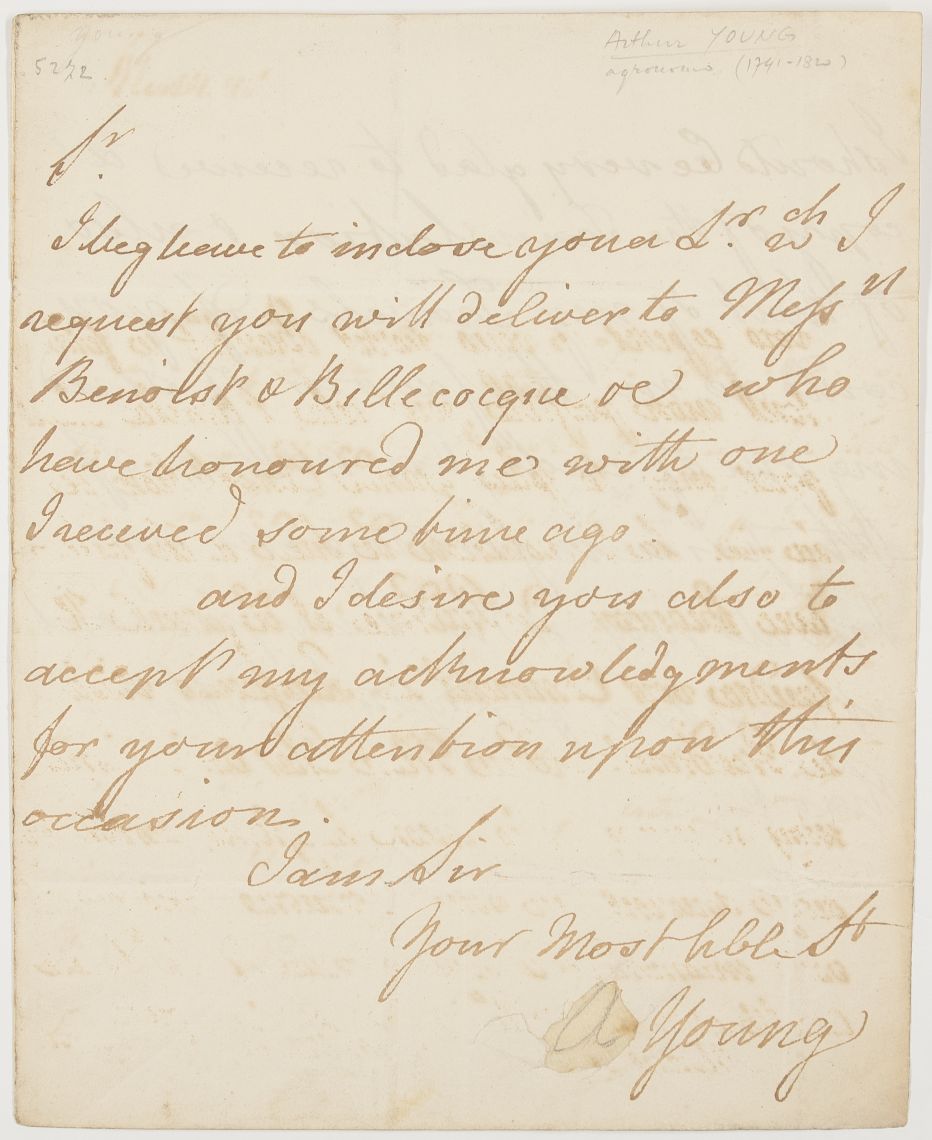 Young
Arthur YOUNG
5272
agronome (1741-1820)
Sr.
I beg leave to inclose you a Lr. wch I
request you will deliver to Messrs
Benoist & Billecocque &c who
have honoured me with one
I received some time ago.
and I desire you also to
accept my acknowledgments
for your attention upon this
occasion.
I am Sir
Your Most hble St
A Young